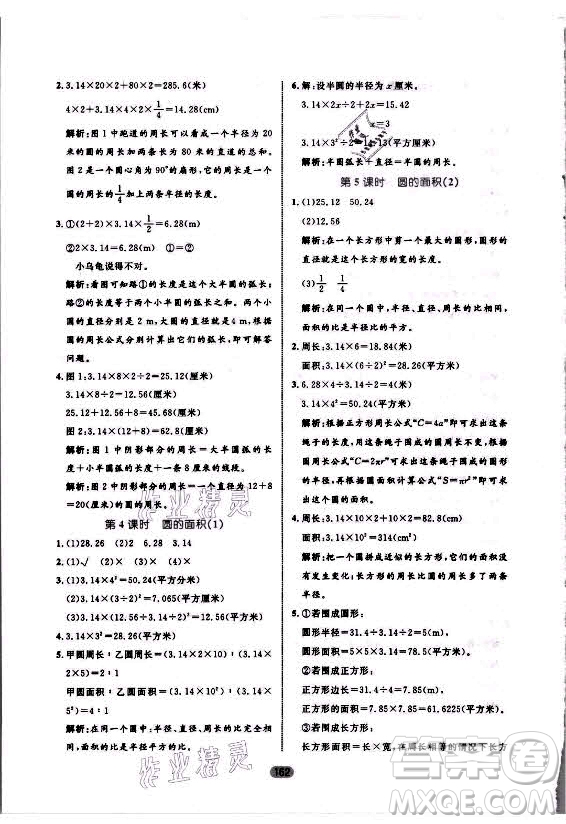 2. 3.14×20×2+80×2=285.6(米)
4×2+3.14×4×2×1/4=14.28(cm)
解析:图1中跑道的周长可以看作一个半径为20
米的圆的周长加两条长为80米的直道的总长。
图2是一个圆心角为90°的扇形,它的周长是圆
周长的1/4加上两条半径的长度。
3. ①(2+2)×3.14×1/2=6.28(m)
②2×3.14=6.28(m) ①=②
小乌龟说得不对。
解析:图中路①的长度是这个大半圆的弧长;
路②的长度等于两个直径为2米的小圆的周长。小
圆的直径分别是2 m,大圆的直径是4 m,根据
圆的周长公式分别计算出它们的弧长即可解答
问题。
4. 图1:3.14×8×2÷2=25.12(厘米)
3.14×8÷2=12.56(厘米)
25.12+12.56+8=45.68(厘米)
图2:3.14×(12+8)=62.8(厘米)
解析:图1中阴影部分的周长=大半圆弧的长
度+小半圆弧长度+一条8厘米的线段。
图2中阴影部分的周长等于一个直径为12+8=
20(厘米)的圆的周长。
第4课时 圆的面积(1)
1. (1)28.26 (2)2 6.28 3.14
2. (1)√ (2)× (3)×
3. (1)3.14×2²=12.56(平方分米)
(2)3.14×(3÷2)²=7.065(平方厘米)
(3)3.14×(12.56÷3.14÷2)²=12.56(平方米)
4. 3.14×3²=28.26(平方米)
5. 甲圆周长:乙圆周长=(3.14×2×2):(3.14×
2)=2:1
甲圆面积:乙圆面积=(3.14×2²):(3.14×
1²)=4:1
解析:在同一个圆中:半径、直径、周长的比完全
相同,面积的比是半径、直径的平方的比。
6. 解:设半圆的半径为x厘米。
3.14×2x÷2+2x=15.42
x=3
3.14×3²÷2=14.13(平方厘米)
解析:半圆弧长+直径=半圆周长。
第5课时 圆的面积(2)
1. (1)25.12 50.24
(2)12.56
解析:在一个长方形中剪一个最大的圆形,圆形
的直径等于长方形的宽的长度。
(3)1/2 1/4
解析:在同一个圆中,半径、直径、周长的比相同,
面积的比是半径比的平方。
2. 周长:3.14×6=18.84(米)
面积:3.14×(6÷2)²=28.26(平方米)
3. 6.28×4÷3.14÷2=4(米)
3.14×4²=50.24(平方米)
解析:根据正方形周长公式“C=4a”求出这条
绳子的长度,即这条绳子围成的圆的周长。根据
圆的周长公式“C=2πr”可求出这条绳子围成
的圆的半径,再根据圆的面积公式“S=πr²”求
出这条绳子围成的圆的面积。
4. 周长:3.14×(10×2)+10×2=82.8(厘米)
面积:3.14×10²=314(平方厘米)
解析:把一个圆拼成近似的长方形,长方形的长
是圆的周长的一半,宽是圆的半径。
长方形的周长比圆的周长多了两条
半径。
5. ①若围成圆形:
圆形半径=31.4÷3.14÷2=5(米)
圆形面积=5×5×3.14=78.5(平方米)
②若围成正方形:
正方形边长=31.4÷4=7.85(米)
正方形的面积=7.85×7.85=61.6225(平方米)
③若围成长方形:
长方形面积=长×宽,在周长相等的情况下长方
162
作业精灵
作业精灵
答案圈
MXQE.COM